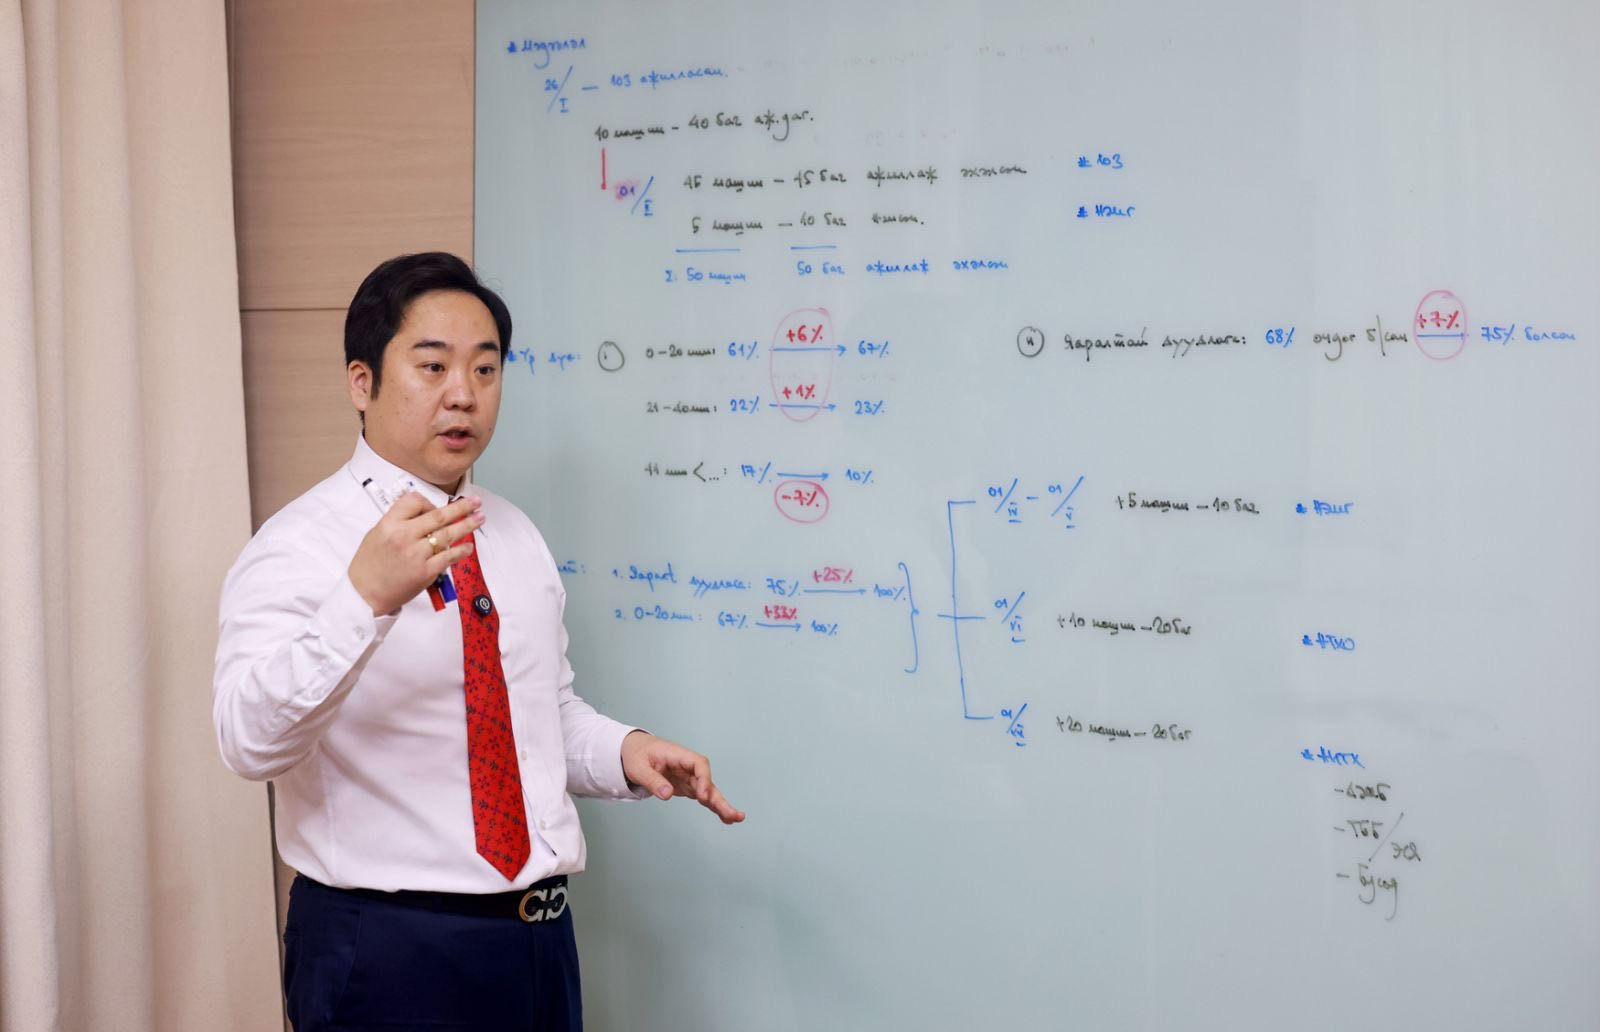 * Мэдээлэл
26/I — 103 ажилласан.
10 машин - 40 баг аж.даг.
01/II 45 машин - 45 баг ажиллаж эхэлсэн
* 103
5 машин - 10 баг нэмсэн.
* НЭМГ
Σ: 50 машин 50 баг ажиллаж эхэлсэн
* Үр дүн: i 0-20 мин: 61% +6% 67%
ii Яаралтай дуудлага: 68% очдог б/сан +7% 75% болсон
21-40мин: 22% +1% 23%
41 мин <...: 17% 10%
-7%
01/IV - 01/V +5 машин - 10 баг
* НЭМГ
1. Яаралт дуудлага: 75% +25% 100%
2. 0-20мин: 67% +33% 100%
01/VI +10 машин - 20баг
* НТХО
01/VII +20 машин - 20баг
* НИТХ
- ТББ/
- Бусад